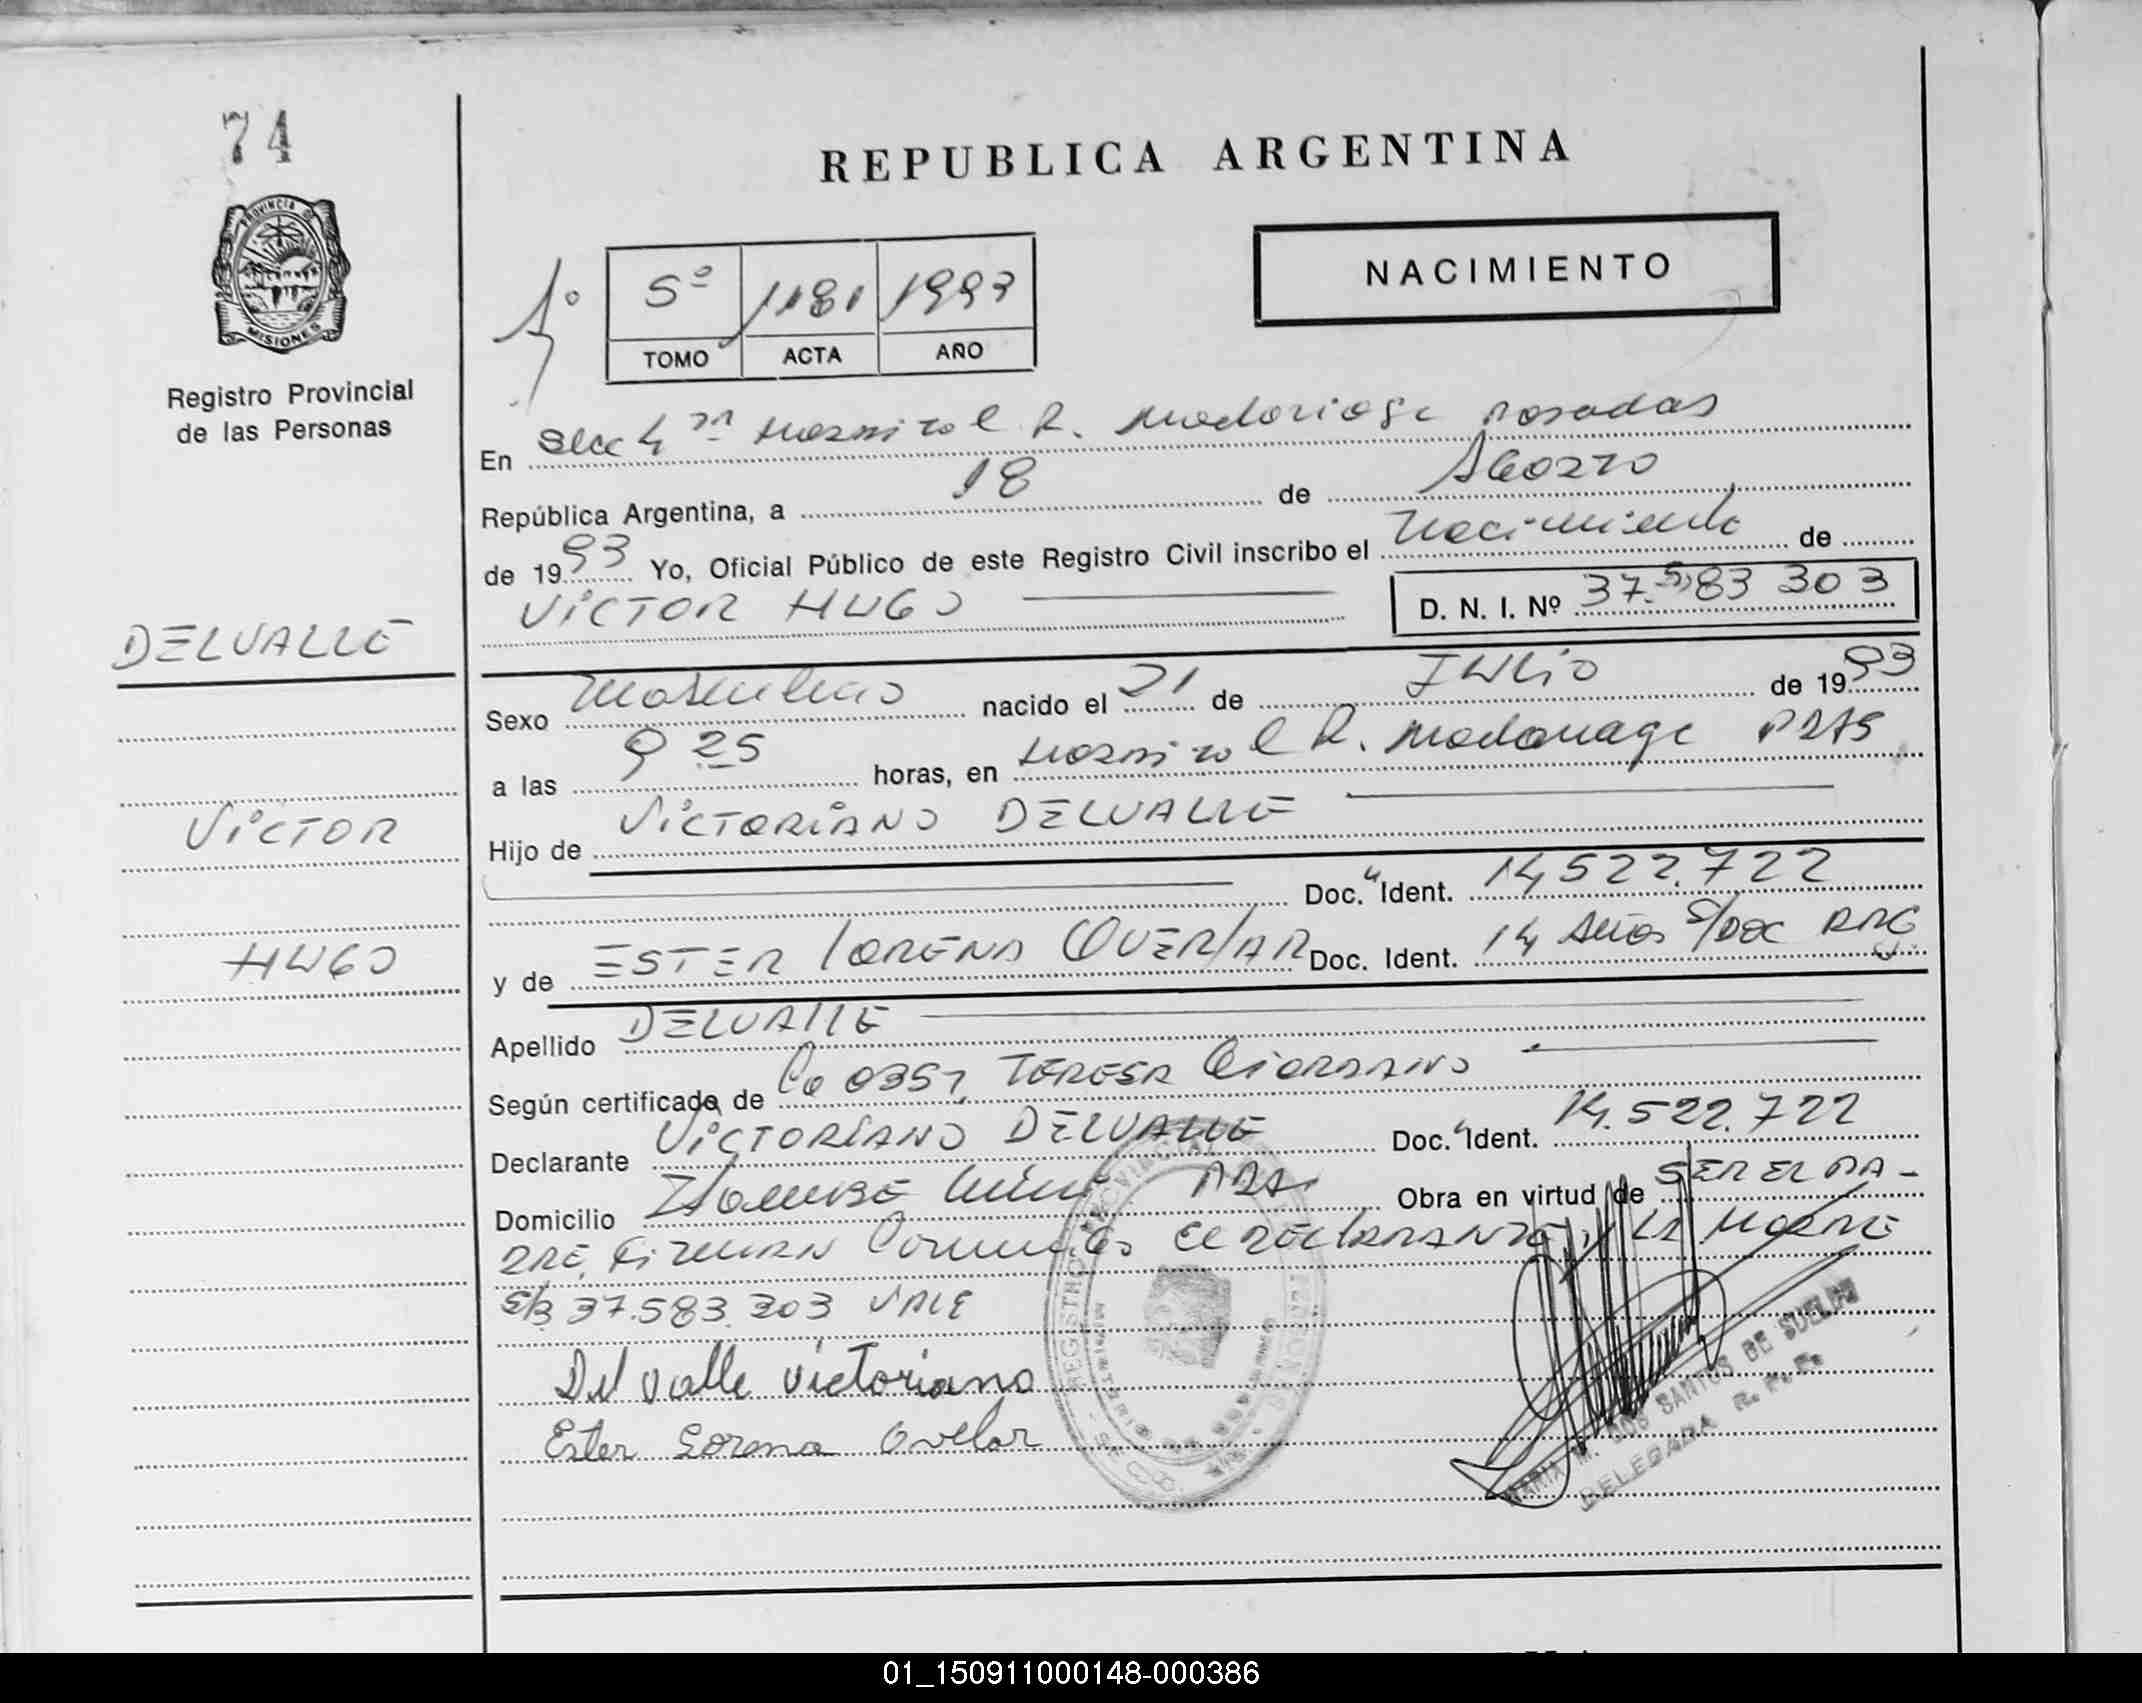 74
REPUBLICA ARGENTINA
PROVINCIA DE
MISIONES
Registro Provincial
de las Personas
NACIMIENTO
1º
5º 1181 1993
TOMO ACTA AÑO
En Secc 4ª Hospital R. Madariaga Posadas
República Argentina, a 18 de Agosto
de 1993 Yo, Oficial Público de este Registro Civil inscribo el Nacimiento de
VICTOR HUGO D. N. I. Nº 37.583 303
DELVALLE
Sexo Masculino nacido el 21 de JULIO de 1993
a las 9 25 horas, en Hospital R. Madariaga PDAS
VICTOR
Hijo de VICTORIANO DELVALLE
Doc. Ident. 14,522.722
HUGO
y de ESTER LORENA OVELAR Doc. Ident. 14 Años S/Doc ARG
Apellido DELVALLE
Según certificado de Co 0357, TERESA GIORDANO
Declarante VICTORIANO DELVALLE Doc. Ident. 14.522.722
Domicilio PDAS Obra en virtud de SER EL PA-
DRE, FIRMAN el DECLARANTE, y LA MADRE
S/B 37.583.303 VALE
Del valle victoriano
Ester Lorena Ovelar
MARIA M. DOS SANTOS DE
DELEGADA R. P. P.
01_150911000148-000386